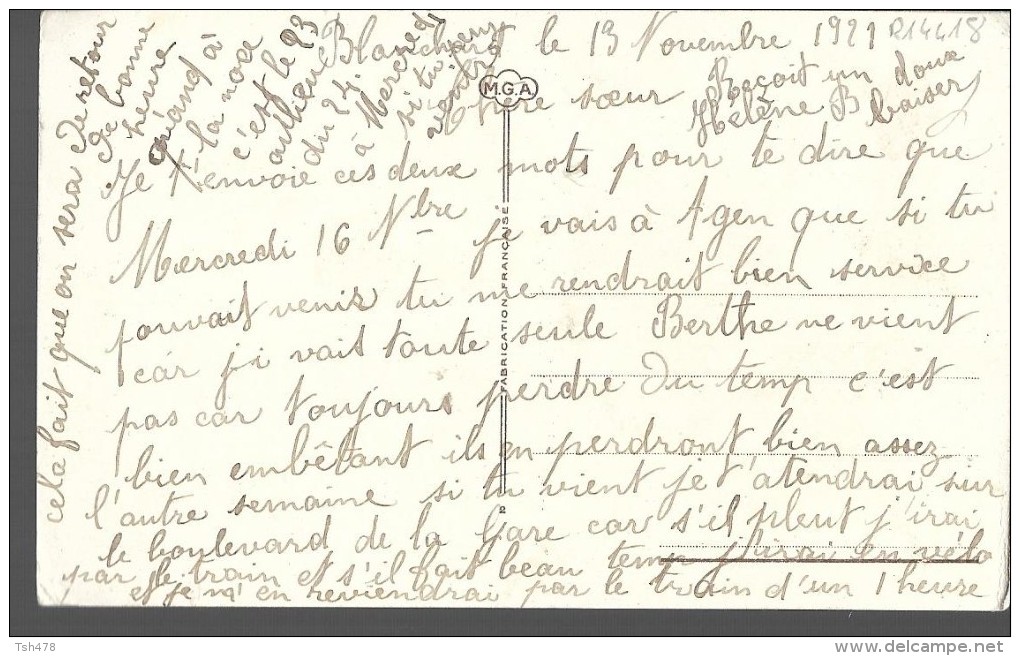 Blanchard le 13 Novembre 1921
R14418
M.G.A
Chère sœur
Je t'envoie ces deux mots pour te dire que
Mercredi 16 Nbre je vais à Agen que si tu
pouvait venir tu me rendrait bien service
car j'i vait toute seule Berthe ne vient
pas car toujours perdre du temp c'est
bien embêtant ils en perdront bien assez
l'autre semaine si tu vient je t'atendrai sur
le boulevard de la Gare car s'il pleut j'irai
par le train et s'il fait beau temp j'irai en vélo
et je m'en reviendrai par le train d'un 1 heure
cela fait que on sera de retour
de bonne
heure
quand à
la noce
c'est le 23
au lieu
du 24
à Mercredi
si tu veux
venir
Reçoit un doux
baiser
Hélène B
FABRICATION FRANÇAISE
Tsh478
www.delcampe.net